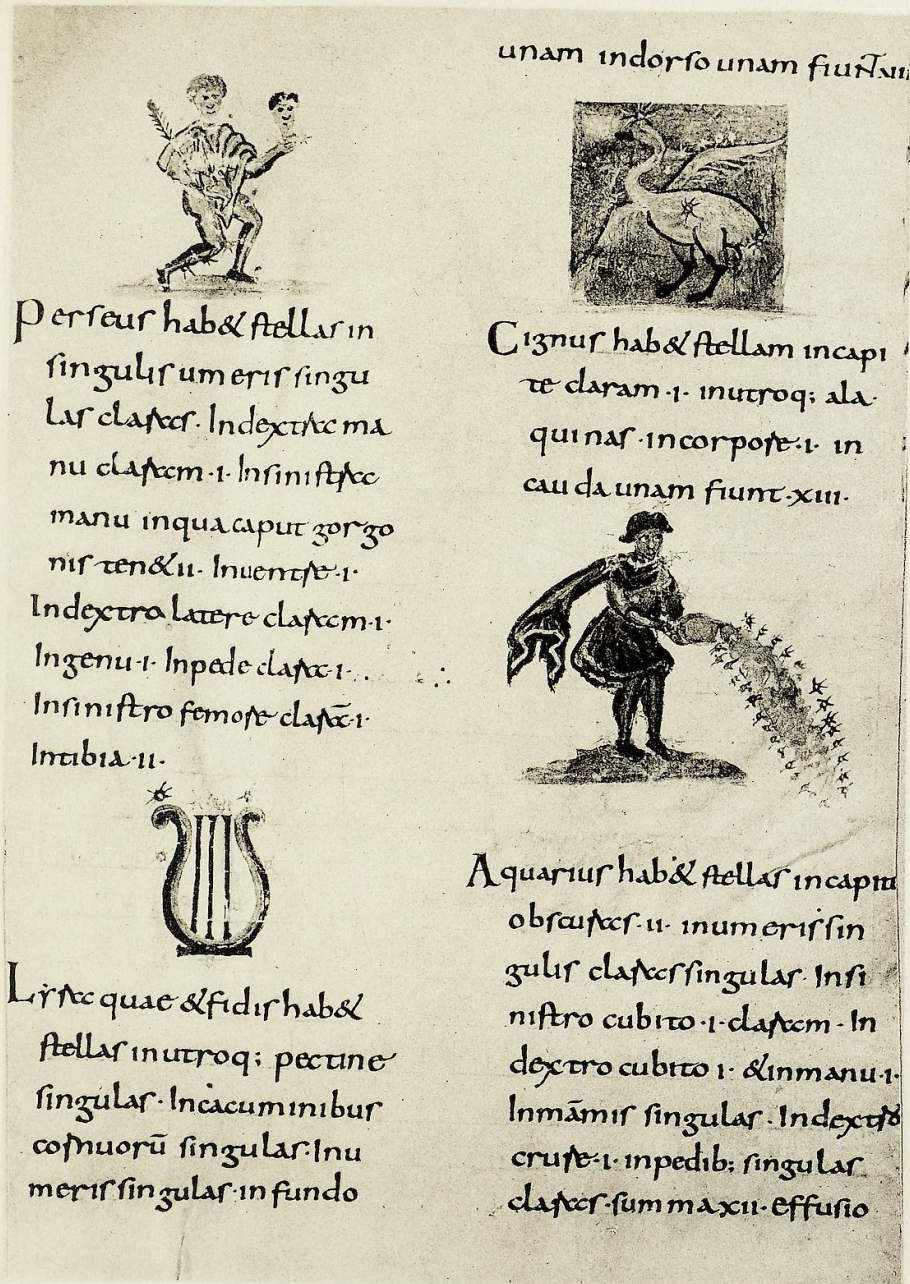 Perseus hab& stellas in
singulis umeris singu
las claras. Indextra ma
nu claram ·i· Insinistra
manu inqua caput gorgo
nis ten& ii· Inventre ·i·
Indextro latere claram ·i·
Ingenu ·i· Inpede clara ·i·
Insinistro femore clarā ·i·
Intibia ·ii·
Lyra quae &fidis hab&
stellas inutroq; pectine
singulas· Incacuminibus
cornuorū singulas· Inu
meris singulas· in fundo
unam indorso unam fiunt
Cignus hab& stellam incapi
te claram ·i· inutroq; ala·
quinas· incorpore ·i· in
cauda unam fiunt ·xiii·
Aquarius hab& stellas incapite
obscuras ·ii· inumeris sin
gulis claras singulas· Insi
nistro cubito ·i· claram · In
dextro cubito i· &inmanu ·i·
Inmāmis singulas · Indextro
crure ·i· inpedib; singulas
claras· summa xii· Effusio